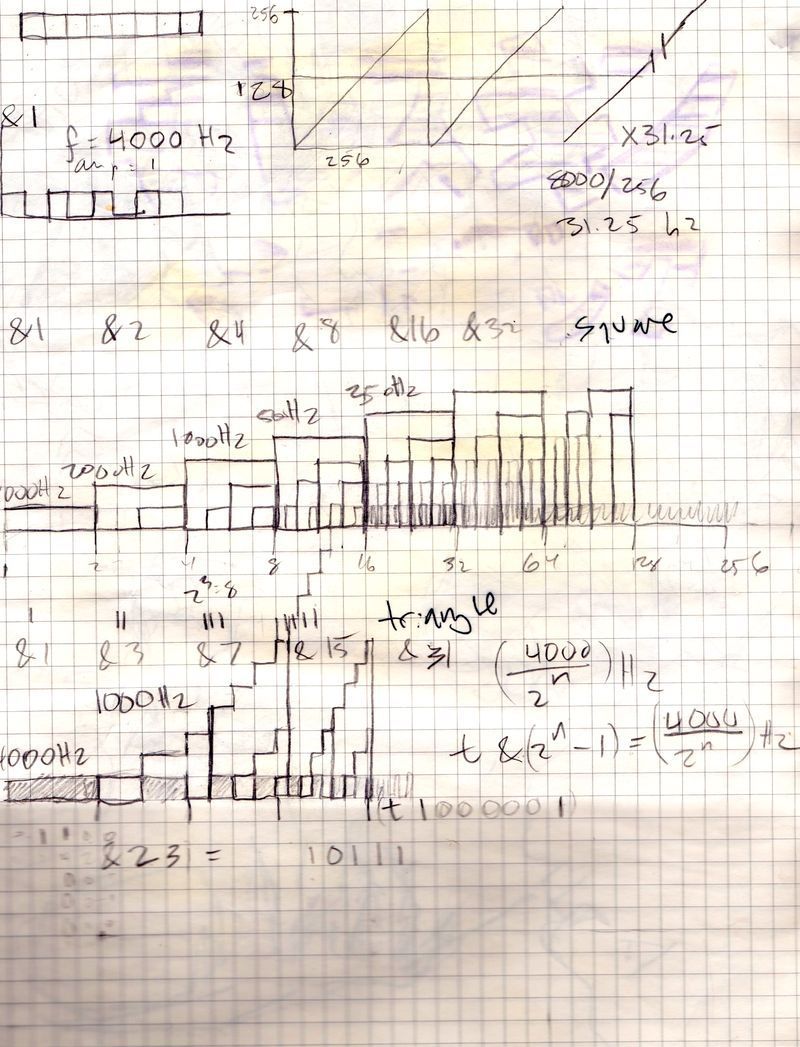 256
128
&1
f = 4000 Hz
amp = 1
256
X31.25
8000/256
31.25 hz
&1 &2 &4 &8 &16 &32 square
250Hz
50Hz
1000Hz
2000Hz
000Hz
2 4 8 16 32 64 128 256
2^3=8
I II III IIII
triangle
&1 &3 &7 &15 &31 (4000/2^n) Hz
1000Hz
4000Hz
t &(2^n - 1) = (4000/2^n) Hz
(t 1000001)
&23 = 10111